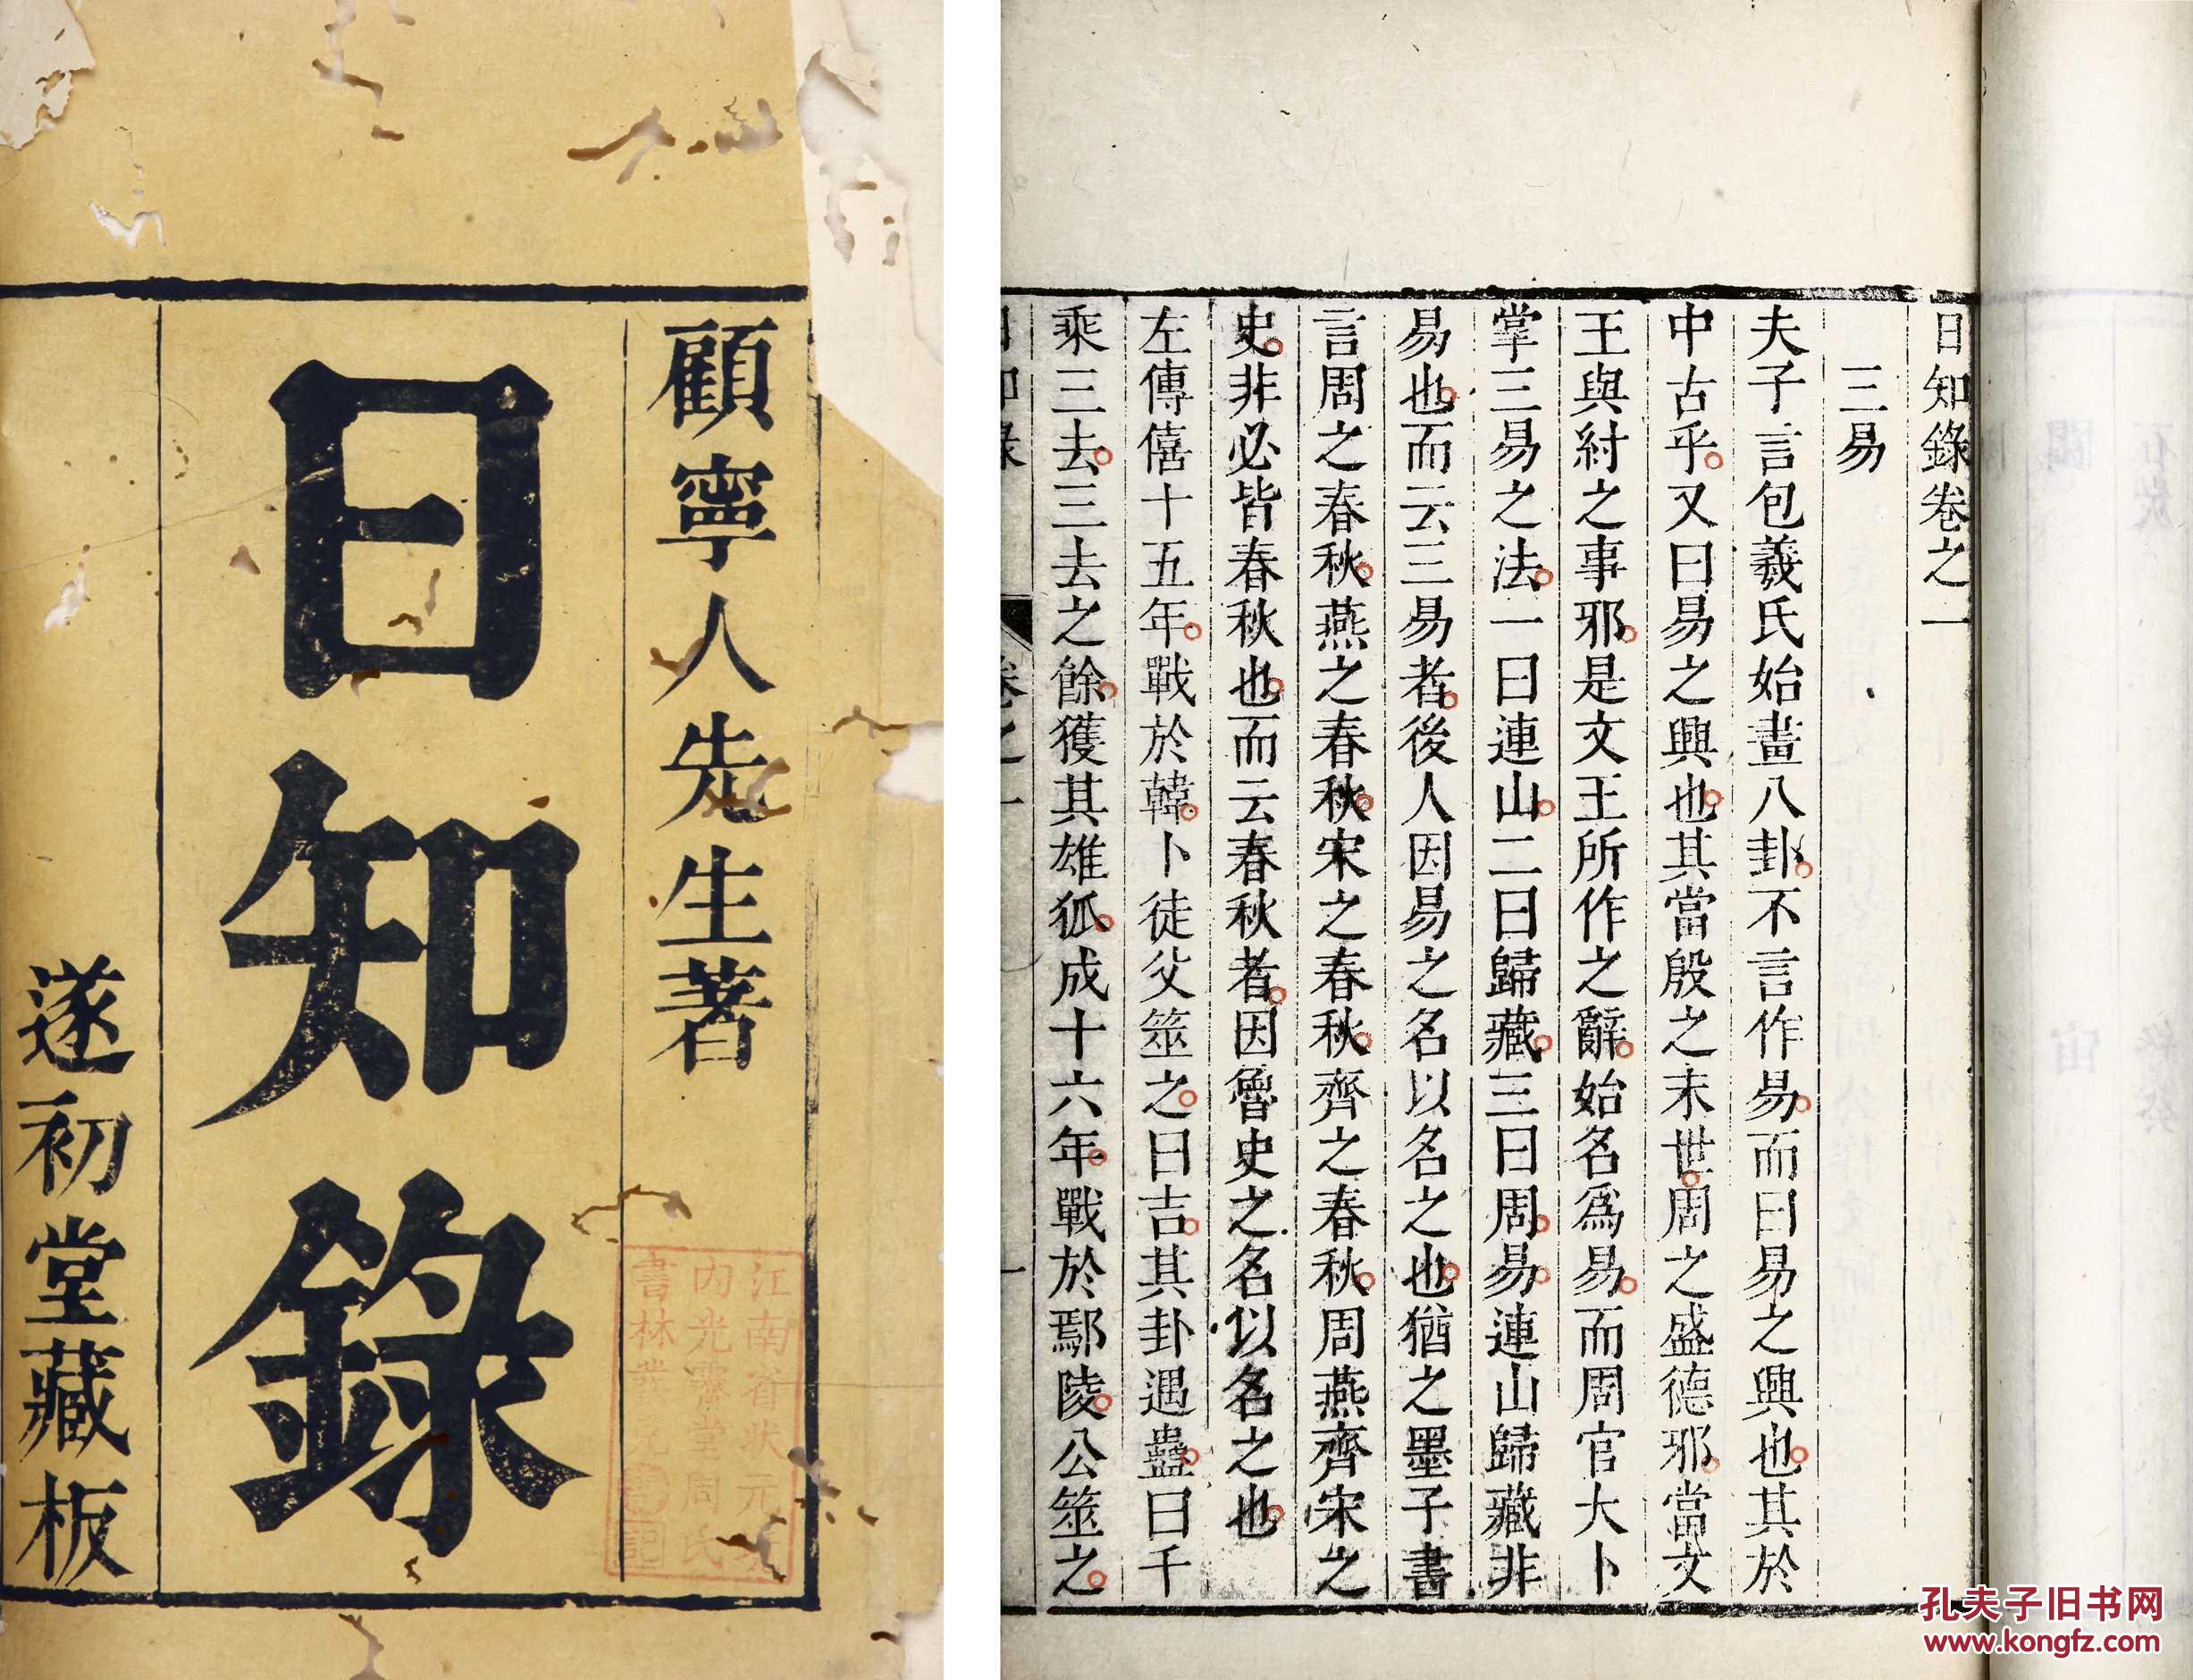 顧寧人先生著
日知錄
遂初堂藏板
江南省狀元
內光霽堂周氏
書林
記
日知錄卷之一
三易
夫子言包羲氏始畫八卦不言作易而曰易之興也其於
中古乎又曰易之興也其當殷之末世周之盛德邪當文
王與紂之事邪是文王所作之辭始名爲易而周官大卜
掌三易之法一曰連山二曰歸藏三曰周易連山歸藏非
易也而云三易者後人因易之名以名之也猶之墨子書
言周之春秋燕之春秋宋之春秋齊之春秋周燕齊宋之
史非必皆春秋也而云春秋者因魯史之名以名之也
左傳僖十五年戰於韓卜徒父筮之曰吉其卦遇蠱曰千
乘三去三去之餘獲其雄狐成十六年戰於鄢陵公筮之
日知錄 卷之一 一
孔夫子旧书网
www.kongfz.com